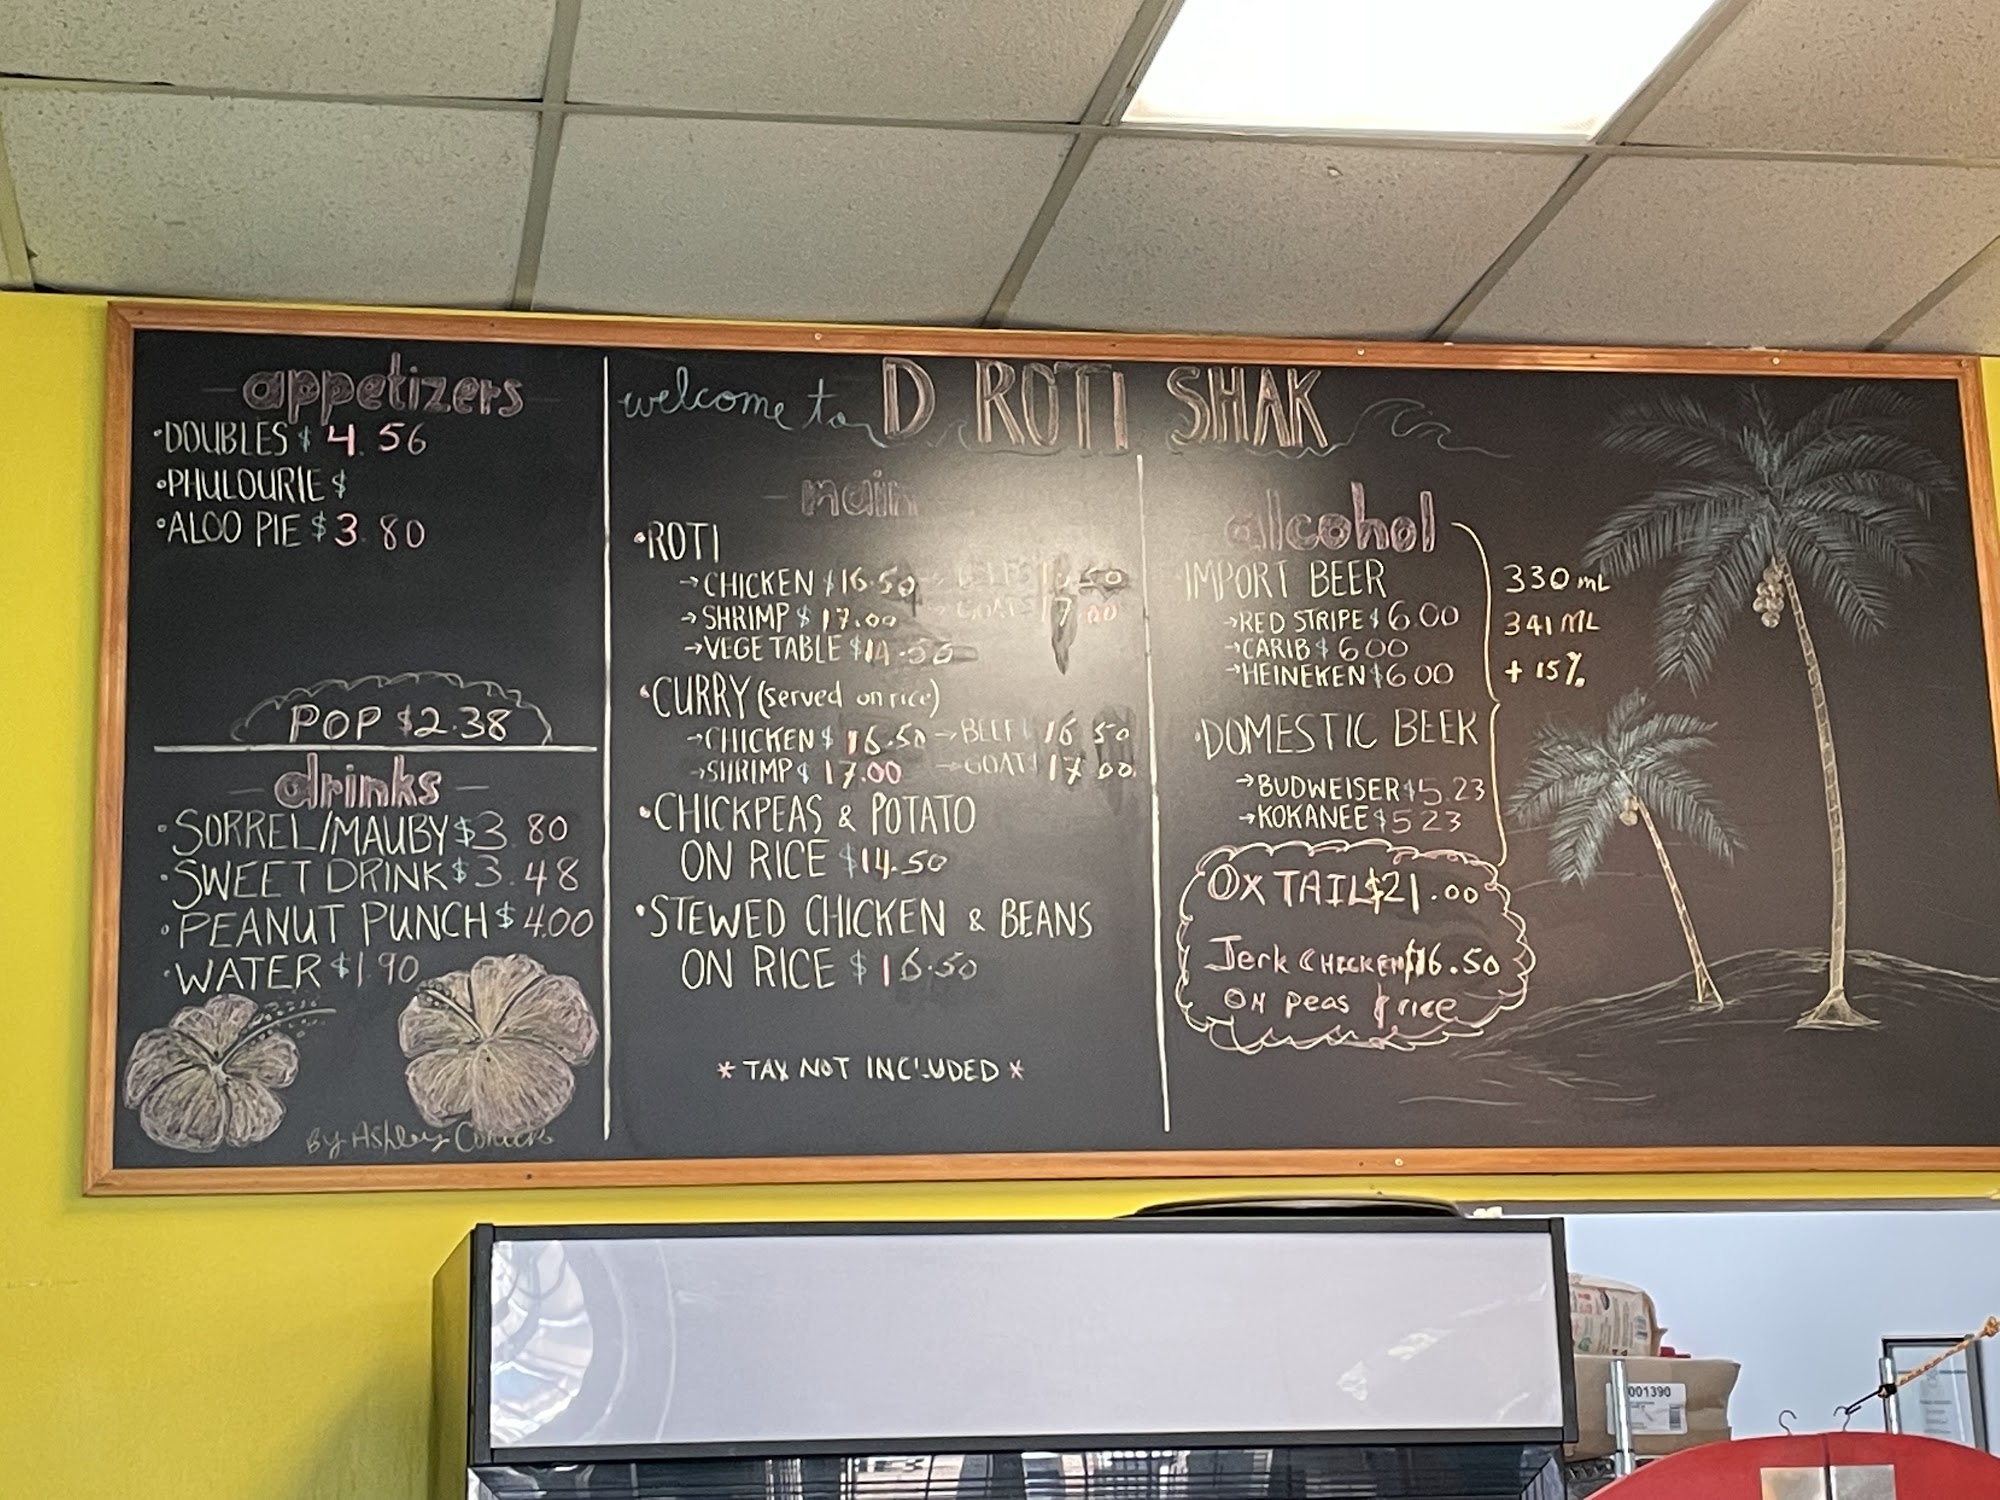 appetizers
•DOUBLES $ 4.56
•PHULOURIE $
•ALOO PIE $3.80
POP $2.38
drinks
•SORREL/MAUBY $3.80
•SWEET DRINK $3.48
•PEANUT PUNCH $4.00
•WATER $1.90
By Ashley
welcome to D ROTI SHAK
main
•ROTI
→CHICKEN $16.50 → BEEF $ 16.50
→SHRIMP $ 17.00 → GOAT $ 17.00
→VEGETABLE $14.50
•CURRY (served on rice)
→CHICKEN $ 16.50 → BEEF $ 16.50
→SHRIMP $ 17.00 → GOAT $ 17.00
•CHICKPEAS & POTATO
ON RICE $14.50
•STEWED CHICKEN & BEANS
ON RICE $16.50
* TAX NOT INCLUDED *
alcohol
IMPORT BEER
→RED STRIPE $ 6.00
→CARIB $ 6.00
→HEINEKEN $6.00
330 mL
341 ML
+ 15%
•DOMESTIC BEER
→BUDWEISER $5.23
→KOKANEE $5.23
OX TAIL $21.00
Jerk CHICKEN $16.50
ON Peas & rice
001390